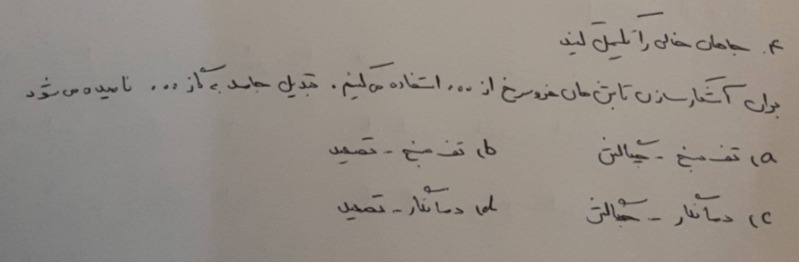 ۴. جاهای خالی را تکمیل کنید
برای آشکارسازی تابش های فروسرخ از ... استفاده می کنیم. تبدیل جامد به گاز ... نامیده می شود
a) تف سنج - چگالش b) تف سنج - تصعید
c) دمانگار - چگالش d) دمانگار - تصعید